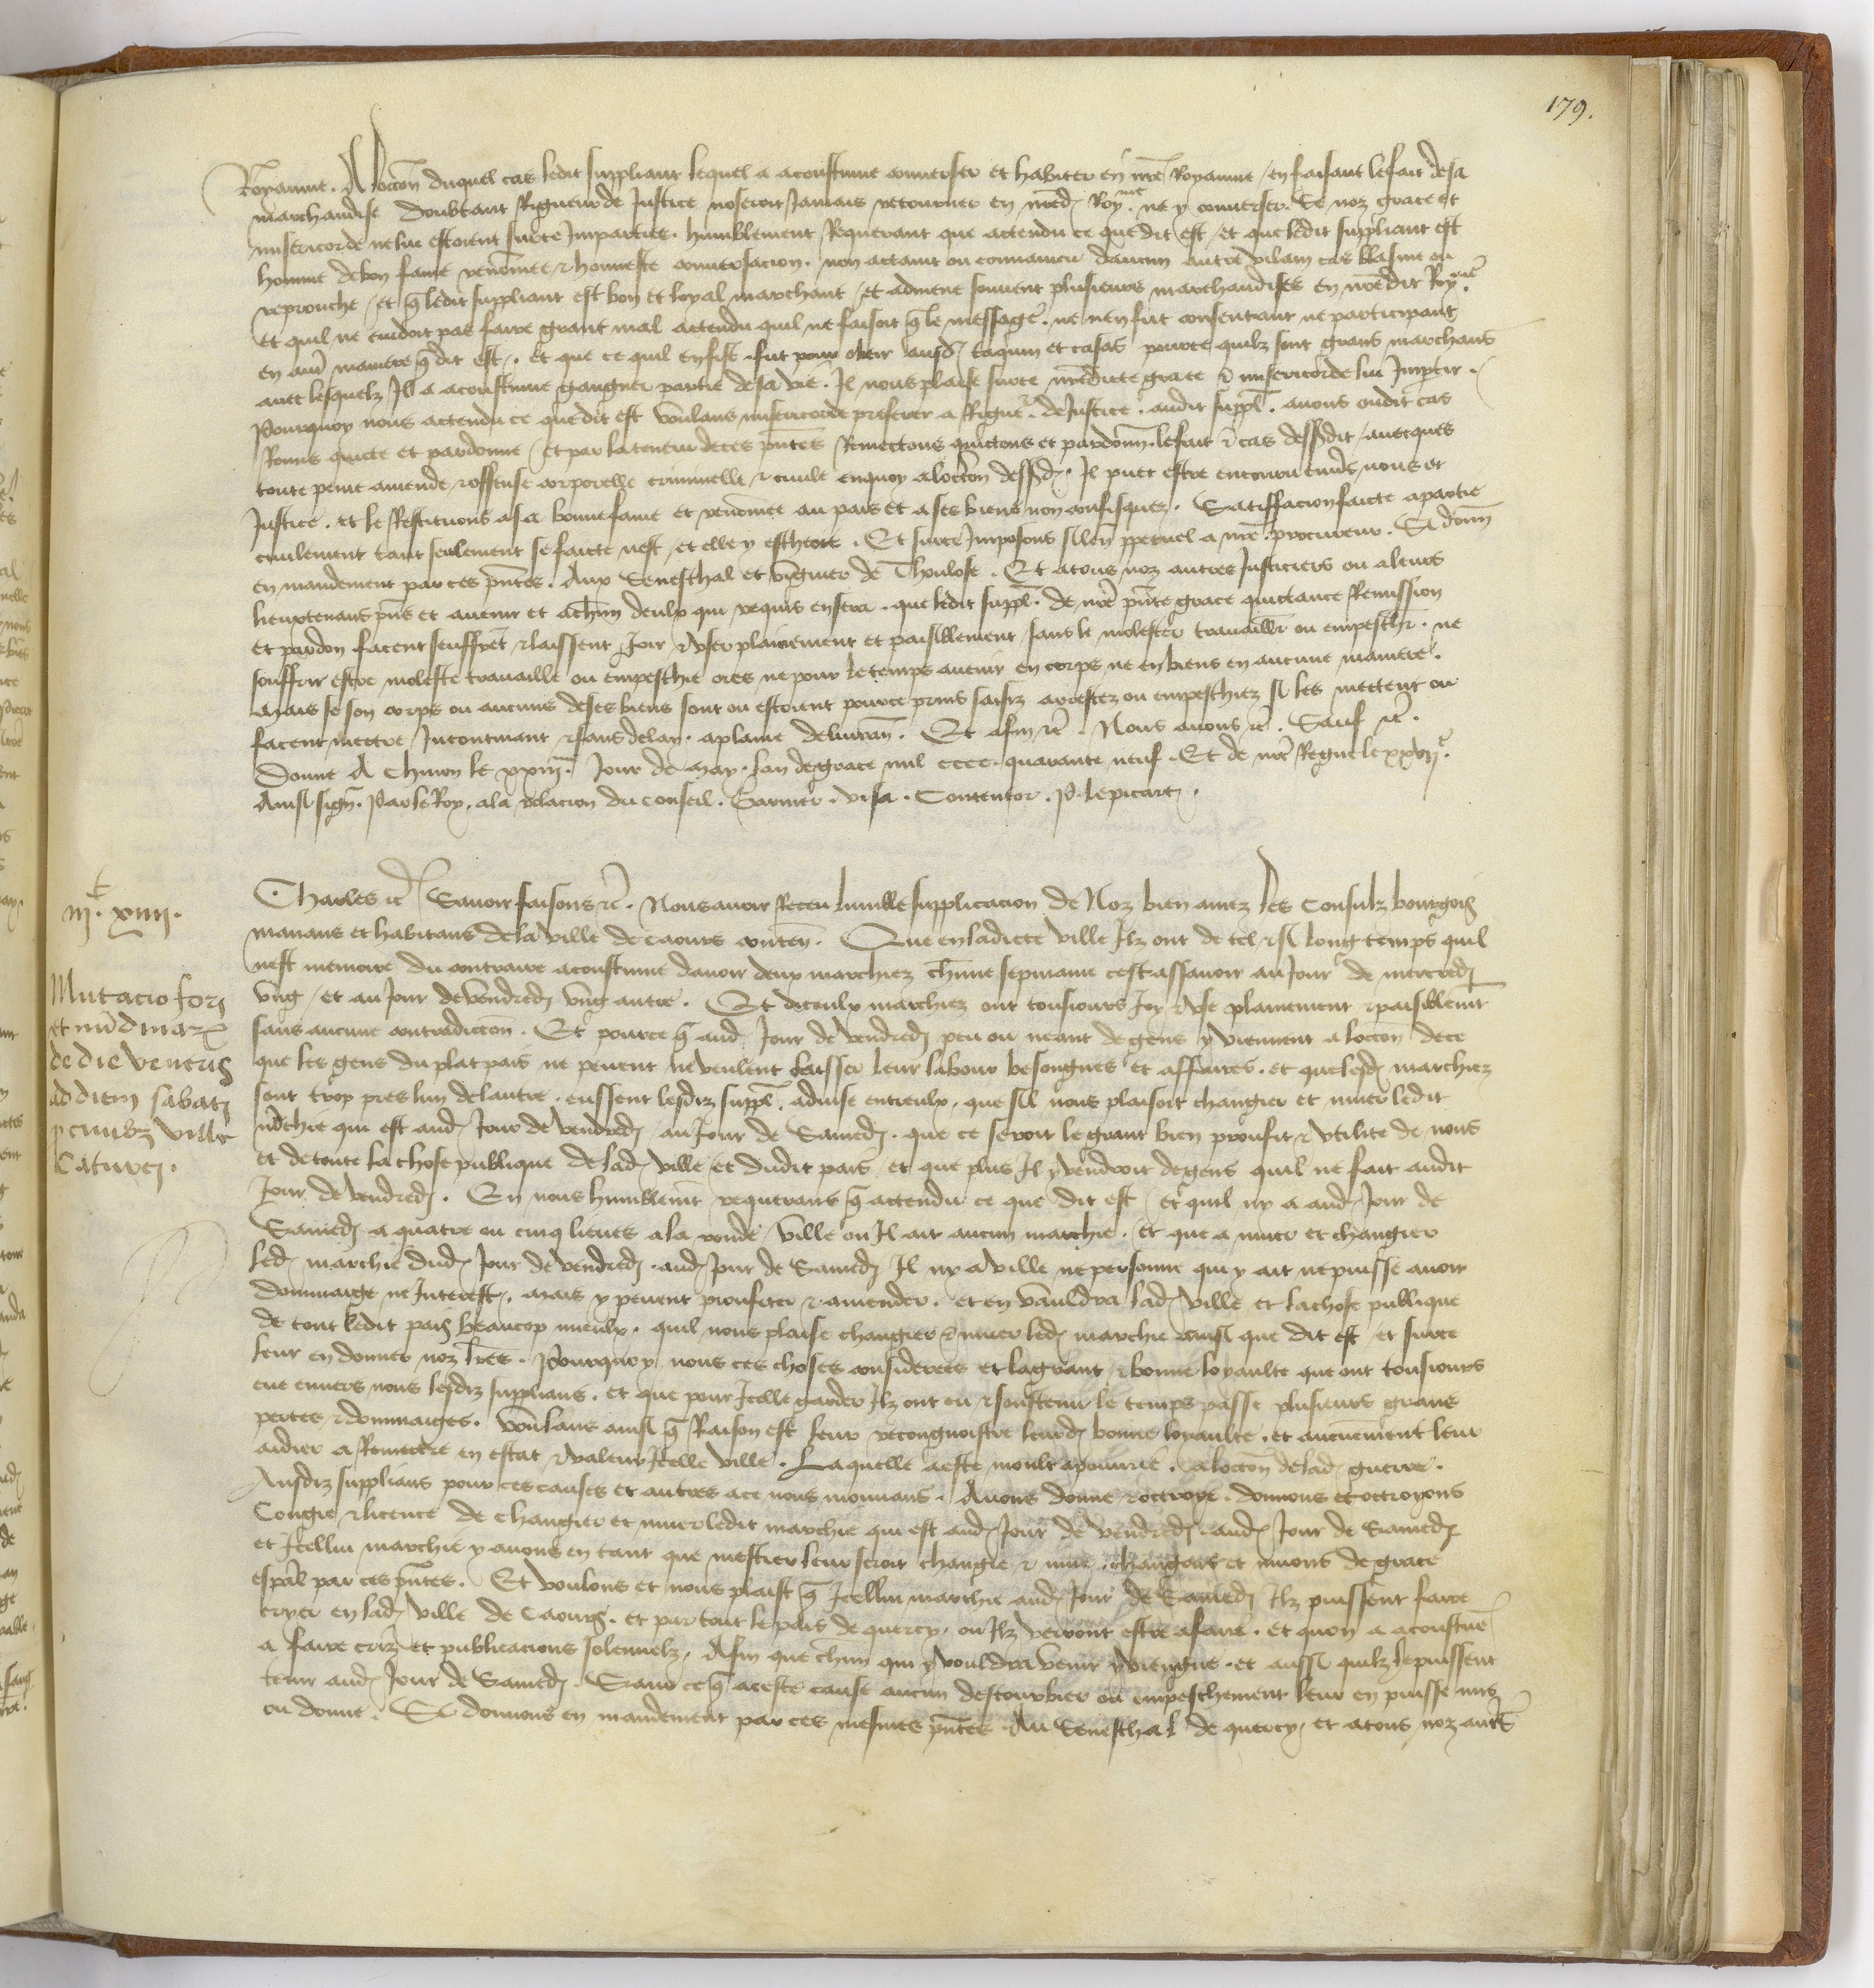 179.
Royaume. A loccon duquel cas ledit suppliant lequel a acoustume converser et habiter en nre Royaume / en faisant le fait de sa
marchandise doubtant Rigueur de Justice noseroit Jamais retourner en nred Roy.me ne y converser. Se noz grace et
misericorde ne lui estoient sur ce Imparties. humblement Requerant que actendu ce que dit est / et que ledit suppliant est
homme de bon fame renommee & honneste conversacion. non actaint ou convaincu daucun autre vilain cas blasme ou
reprouche / et q ledit suppliant est bon et loyal marchant / et admene souvent plusieurs marchandises en nredit Roy.me
et quil ne cuidoit pas faire grant mal actendu quil ne faisoit q le message. ne nen fut consentant ne participant
en aut maniere q dit est. et que ce quil en fist fut pour obeir ausd Taquin et casas pource quilz sont grans marchans
avec lesquelz Il a acoustume gangner partie de sa vie. Il nous plaise sur ce nredicte grace & misericorde lui Impartir.
Pourquoy nous actendu ce que dit est voulans misericorde preferer a Rigueur de Justice. audit suppl. avons oudit cas
Remis quicte et pardonne / et par la teneur de ces pntes Remectons quictons et pardonn. le fait & cas dessdit / avecques
toute peine amende & offense corporelle criminelle & civile en quoy a loccon dessd. Il puet estre encouru envs nous et
Justice. et le Restituons a sa bonne fame et renomee au pais et a ses biens non confisquez. Satisfacion faicte a partie
civilement tant seulement se faicte nest / et elle y eschiet. Et sur ce Imposons silen ppetuel a nre procureur. Si donn
en mandement par ces pntes. Aux Seneschal et viguier de Thoulose. Et a tous noz autres Justiciers ou a leurs
lieuxtenans pns et avenir et a chun deulx qui requis en sera. que ledit suppl. de nre pnte grace quictance Remission
et pardon facent seuffrent & laissent Joir & user plainement et paisiblement sans le molester travaillr ou empeschr. ne
souffrir estre moleste travaille ou empeschie ores ne pour le temps avenir en corps ne en biens en aucune maniere.
Mais se son corps ou aucuns de ses biens sont ou estoient pource prins saisiz arrestez ou empeschiez si les mectent ou
facent mectre Incontinant & sans delay. a plaine delivran. Et afin &c. Nous avons &c. Sauf &c.
Donne A Chinon le xxiii.me Jour de May. lan de grace mil cccc. quarante neuf. Et de nre Regne le xxvii.e
Ainsi sign. Par le Roy, a la relacion du conseil. Garnier. visa. Contentor. P. le picart.
Charles &c Savoir faisons &c. Nous avoir Receu humble supplicacion de Noz bien amez Les Consulz bourgois
manans et habitans de la ville de Caours conten. Que en ladicte ville Ilz ont de tel & si long temps quil
nest memoire du contraire acoustume davoir deux marchiez chune sepmaine cestassavoir au Jour de mercred
ung / et au Jour de vendred ung autre. Et diceulx marchiez ont tousiours Joy & use plainement & paisiblemt
sans aucune contradiccon. Et pource q aud Jour de vendred peu ou neant de gens y viennent a loccon de ce
que les gens du plat pais ne pevent ne veulent laisser leur labour besongnes et affaires. et que lesd marchiez
sont trop pres lun de lautre. eussent lesdiz suppl. advise entreulx, que sil nous plaisoit changier et muer ledit
mchie qui est aud Jour de vendred au Jour de Samed. que ce seroit le grant bien proufit & utilite de nous
et de toute la chose publique de lad ville et dudit pais / et que plus Il y vendroit de gens quil ne fait audit
Jour de vendred. En nous humblemt requerans q actendu ce que dit est / et quil ny a aud Jour de
Samed a quatre ou cinq lieues a la ronde ville ou Il ait aucun marchie. et que a muer et changier
led marchie dud Jour de vendred. aud Jour de Samed Il ny a ville ne personne qui y ait ne puisse avoir
dommaige ne Interest. Mais y pevent proufiter & amender. et en vauldra lad ville et la chose publique
de tout ledit pais beaucop mieulx. quil nous plaise changier & muer led marchie ainsi que dit est / et sur ce
leur en donner noz lres. Pourquoy nous ces choses considerees et la grant & bonne loyaulte que ont tousiours
eue envers nous lesdiz supplians. et que pour Icelle garder Ilz ont eu & soustenu le temps passe plusieurs grans
pertes & dommaiges. voulans ainsi q Raison est leur recongnoistre leurd bonne loyaulte. et aucunement leur
aidier a Remectre en estat & valeur Icelle ville. Laquelle a este moult apouvrie. a loccon de lad guerre.
Ausdiz supplians pour ces causes et autres a ce nous mouvans. Avons donne & octroye. donnons et octroyons
Congie & licence de changier et muer ledit marchie qui est aud Jour de vendred aud Jour de Samed
et Icellui marchie y avons en tant que mestier leur seroit changie & mue. changons et muons de grace
espal par ces pntes. Et voulons et nous plaist q Icellui marchie aud Jour de Samed Ilz puissent faire
cryer en lad ville de Caours. et par tout le pais de quercy. ou Ilz verront estre a faire. et quon a acoustue
a faire criz et publicacions solennelz, Afin que chun qui y vouldra venir y viengne. et aussi quilz le puissent
tenir aud Jour de Samed. Sans ce q a ceste cause aucun destourbier ou empeschement leur en puisse mis
ou donne. Si donnons en mandement par ces mesmes pntes Au Seneschal de quercy, et a tous noz autrs
iii.c xiiii.
Mutacio fori
et nudinar
de die veneris
ad diem sabati
p civibz ville
Caturcen.